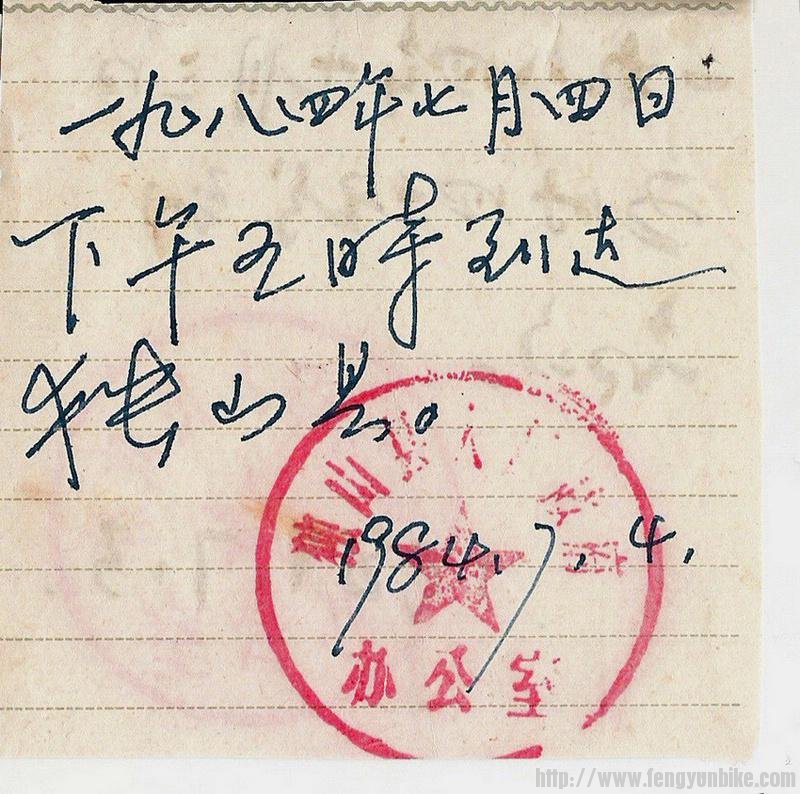 一九八四年七月四日
下午五時到达
独山县。
1984.7.4.
独山县人民政府
办公室
http://www.fengyunbike.com